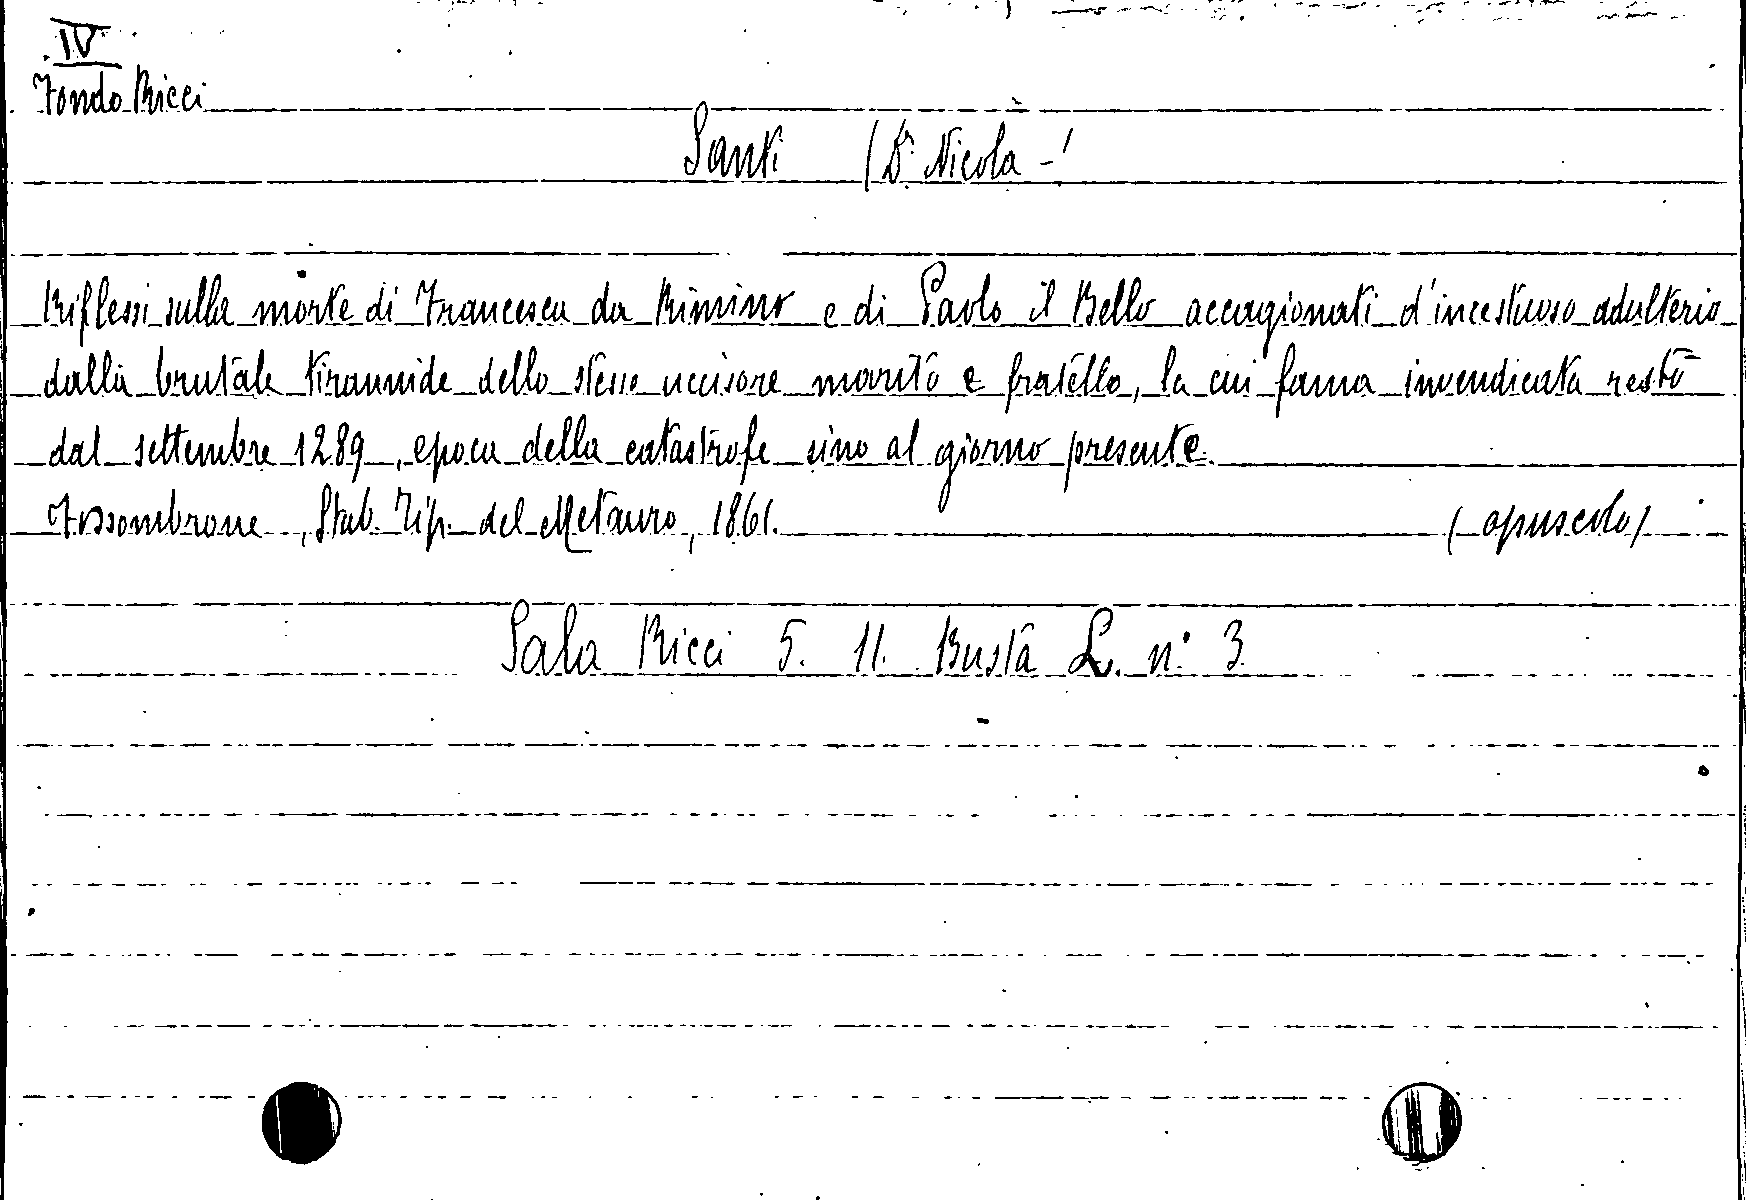 IV
Fondo Ricci
Santi (Dr. Nicola -)
Riflessi sulla morte di Francesca da Rimino e di Paolo il Bello accagionati d'incestuoso adulterio
dalla brutale tirannide dello stesso uccisore marito e fratello, la cui fama invendicata restò
dal settembre 1289, epoca della catastrofe sino al giorno presente.
Fossombrone, Stab. Tip. del Metauro, 1861. (opuscolo)
Sala Ricci 5. 11. Busta L. n° 3